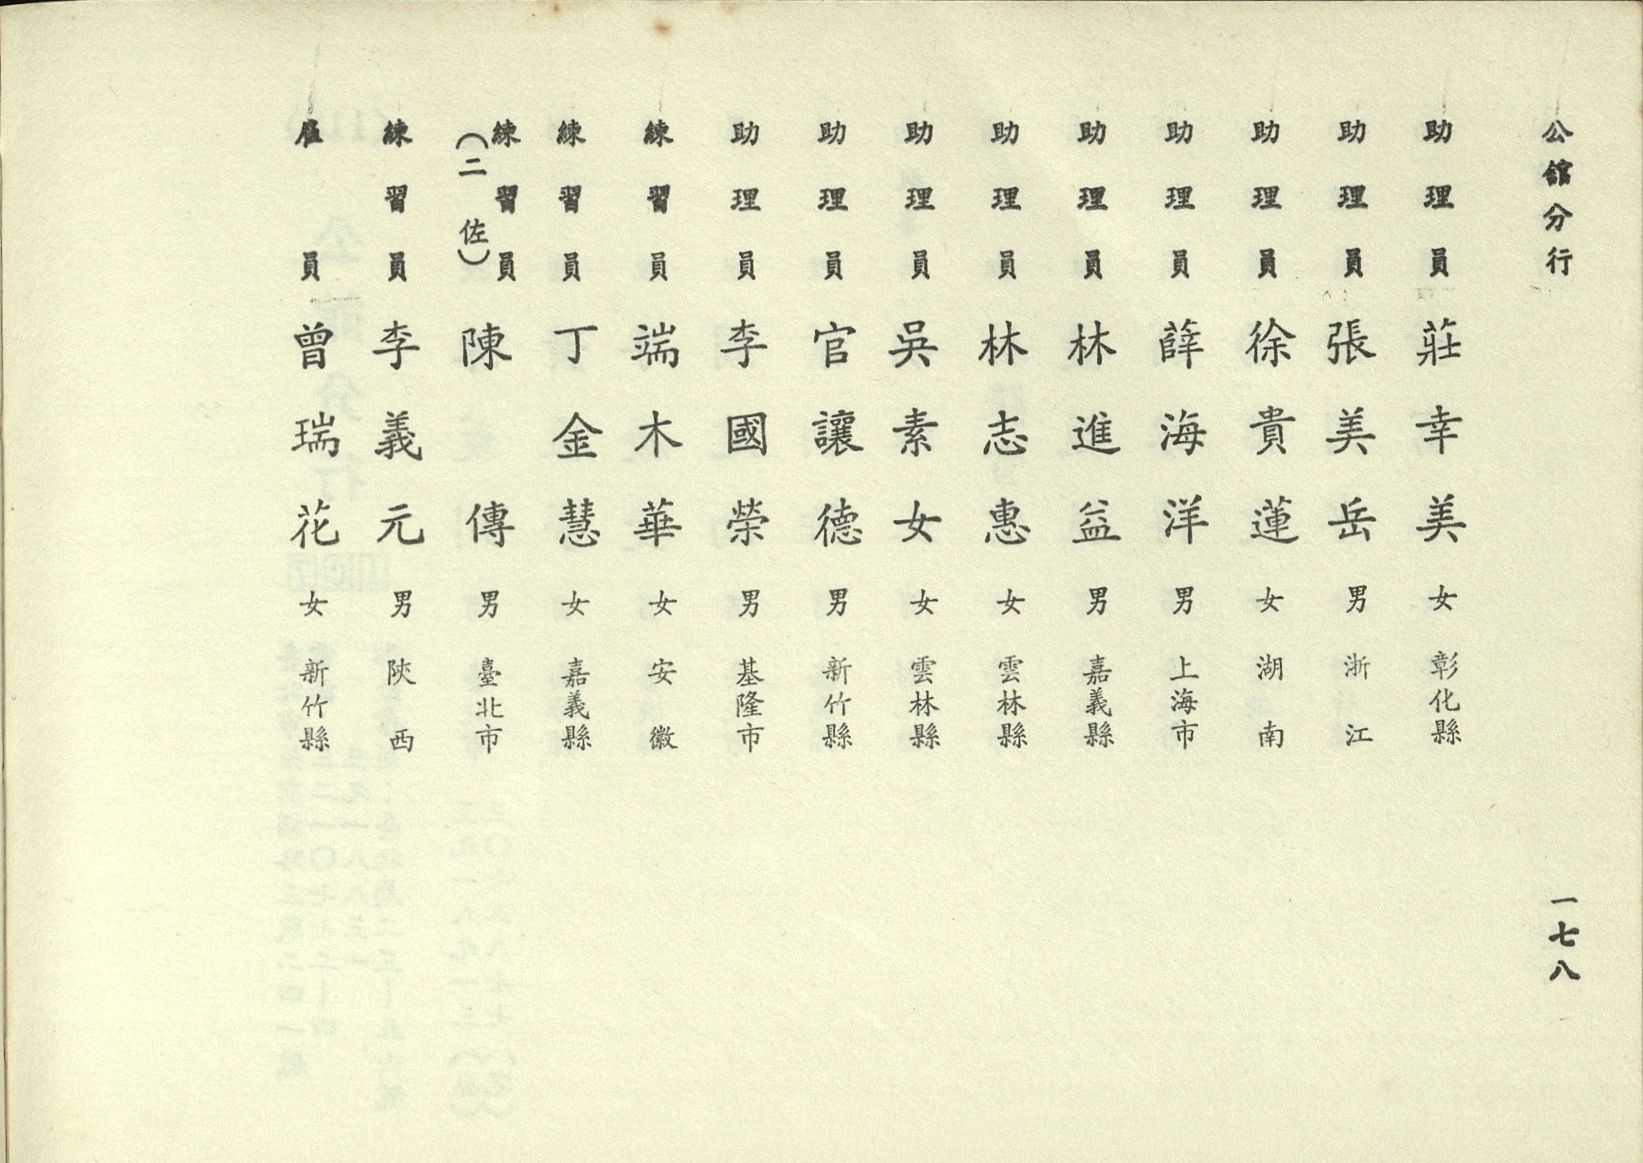 公館分行
一七八
助理員 莊幸美 女 彰化縣
助理員 張美岳 男 浙江
助理員 徐貴蓮 女 湖南
助理員 薛海洋 男 上海市
助理員 林進益 男 嘉義縣
助理員 林志惠 女 雲林縣
助理員 吳素女 女 雲林縣
助理員 官讓德 男 新竹縣
助理員 李國榮 男 基隆市
練習員 端木華 女 安徽
練習員 丁金慧 女 嘉義縣
練習員（二佐） 陳傳 男 臺北市
練習員 李義元 男 陝西
雇員 曾瑞花 女 新竹縣